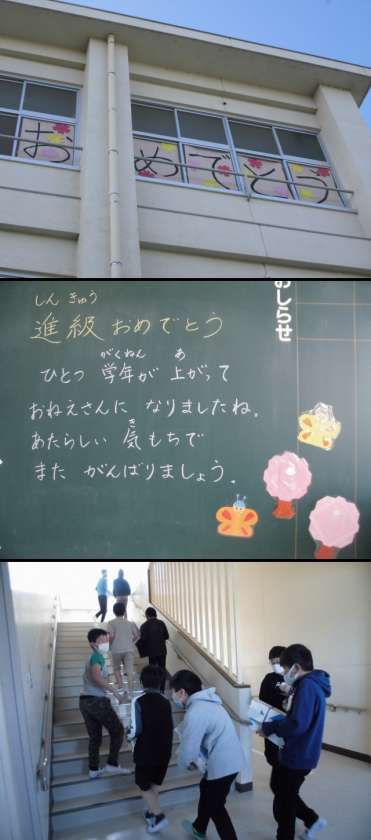 おめでとう
おしらせ
しん きゅう
進級 おめでとう
がくねん あ
ひとつ 学年が 上がって
おねえさんに なりましたね。
き
あたらしい 気もちで
また がんばりましょう。